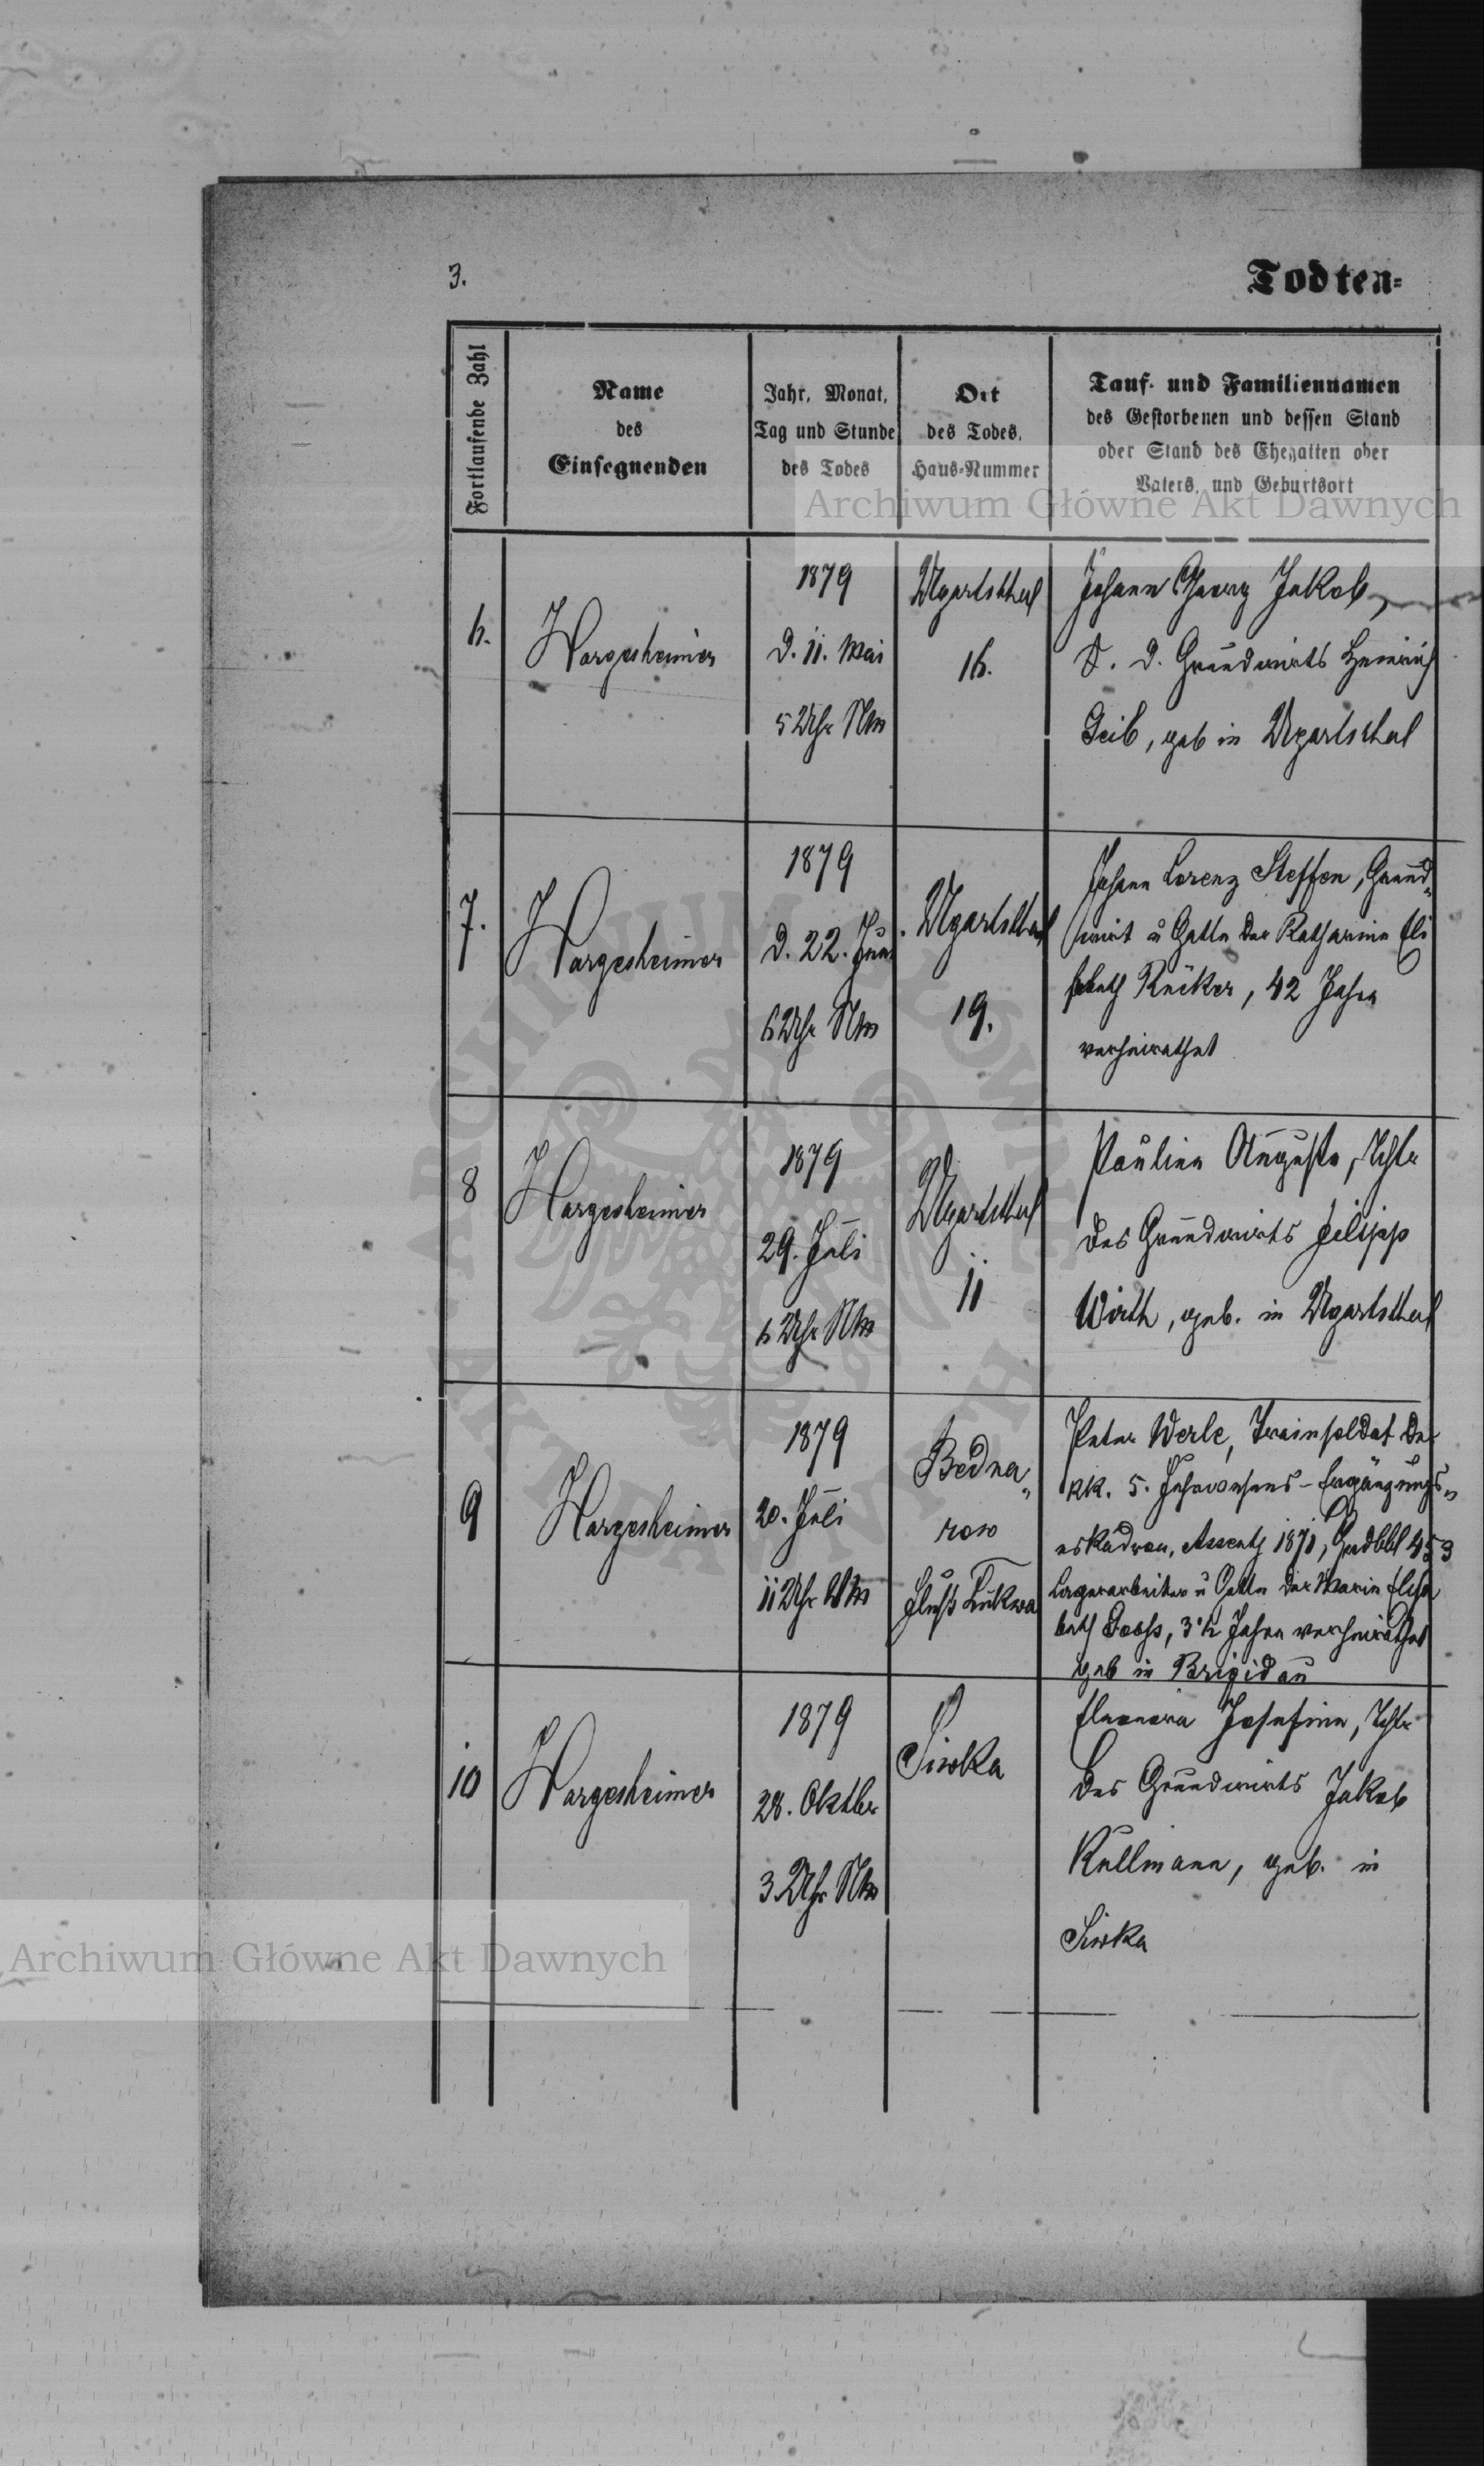 3.
Todten=
Fortlaufende Zahl
Name
des
Einsegnenden
Jahr, Monat,
Tag und Stunde
des Todes
Ort
des Todes,
Haus-Nummer
Tauf- und Familiennamen
des Gestorbenen und dessen Stand
oder Stand des Ehegatten oder
Vaters, und Geburtsort
Archiwum Główne Akt Dawnych
6.
Hargesheimer
1879
d. 11. Mai
5 Uhr Nm
Ugartsthal
16.
Johann Georg Jakob,
S. d. Grundwirts Heinrich
Geib, geb in Ugartsthal
7.
Hargesheimer
1879
d. 22. Juni
6 Uhr Nm
Ugartsthal
19.
Johann Lorenz Steffen, Grund„
wirt u Gatte der Katharina Eli
sabeth Rücker, 42 Jahre
verheirathet
8
Hargesheimer
1879
29. Juli
6 Uhr Nm
Ugartsthal
11
Paulina Auguste, Tchtr
des Grundwirts Filipp
Wirth, geb. in Ugartsthal
9
Hargesheimer
1879
20. Juli
11 Uhr Vm
Bedna„
row
Fluß Łukwa
Peter Werle, Trainsoldat der
kk. 5. Fuhrwesens-Ergänzungs„
eskadron, Assentj 1871, Grdbbl 453
Lagerarbeiter u Gatte der Maria Elisa
beth, 3½ Jahre verheirathet
geb in Brigidau
10
Hargesheimer
1879
28. Oktbr
3 Uhr Nm
Siwka
Eleonora Josefina, Tchtr
des Grundwirts Jakob
Kullmann, geb. in
Siwka
Archiwum Główne Akt Dawnych
ARCHIWUM GŁÓWNE AKT DAWNYCH